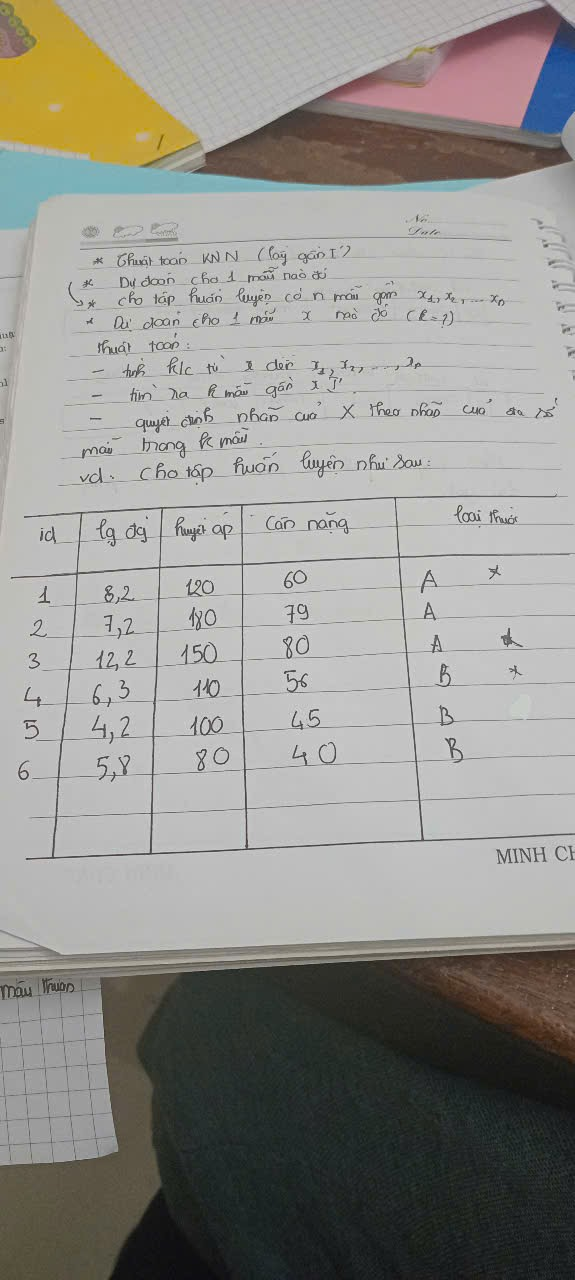 No.
Date
* Thuật toán KNN (láng gần I')
* Dự đoán cho 1 mẫu nào đó
* cho tập huấn luyện có n mẫu gồm x1, x2, ... xn
* Dự đoán cho 1 mẫu x nào đó (k=?)
thuật toán:
- tính k/c từ x đến x1, x2, ..., xn
- tìm ra k mẫu gần x I'
- quyết định nhãn của X theo nhãn của đa số
mẫu trong k mẫu.
vd: Cho tập huấn luyện như sau:
id lg đg huyết áp Cân nặng loại thuốc
1 8,2 120 60 A *
2 7,2 180 79 A
3 12,2 150 80 A *
4 6,3 110 56 B *
5 4,2 100 45 B
6 5,8 80 40 B
MINH CH
mâu thuẫn